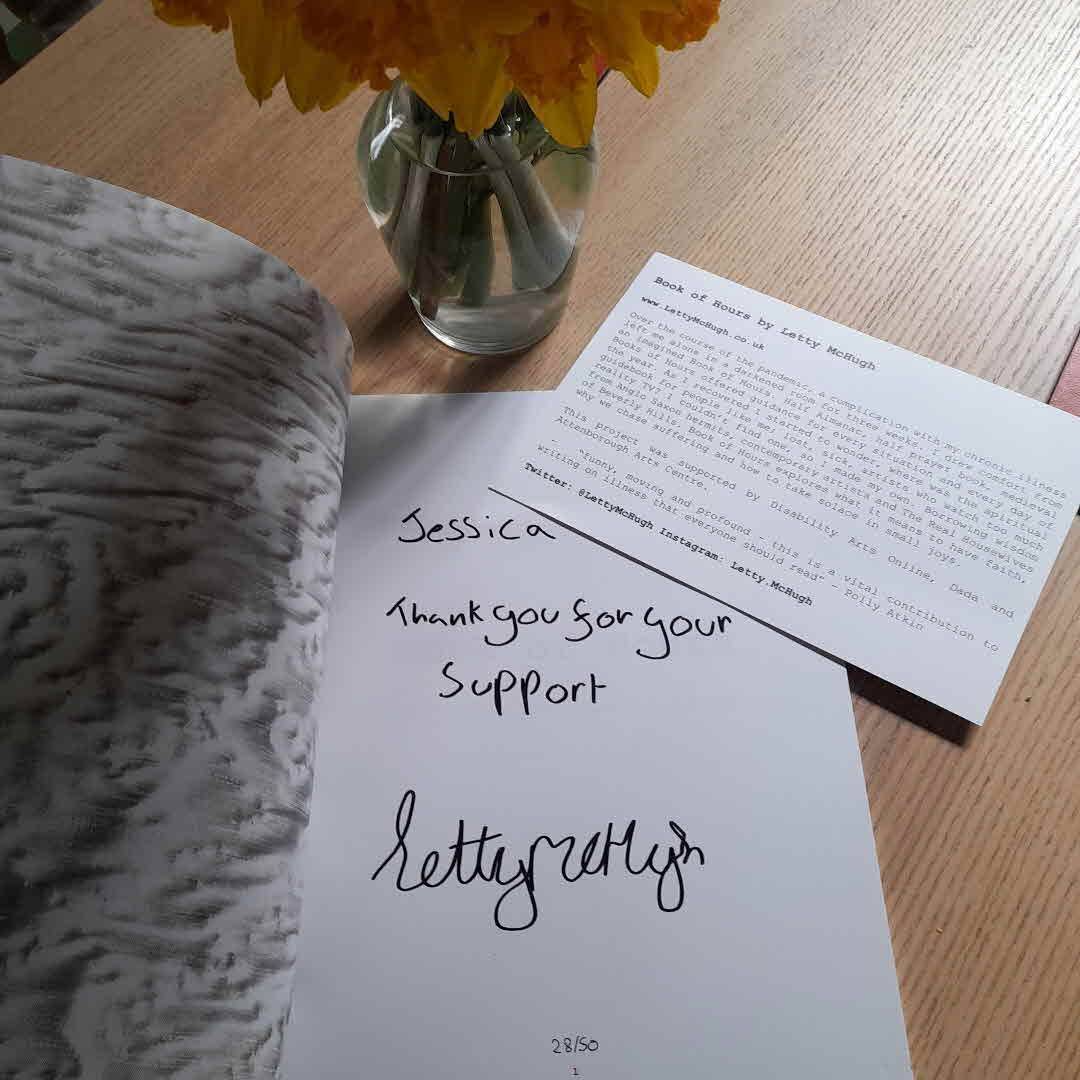 Book of Hours by Letty McHugh
www.LettyMcHugh.co.uk
Over the course of the pandemic, a complication with my chronic illness
left me alone in a darkened room for three weeks. I drew comfort from
an imagined Book of Hours. Half Almanac, half prayer book, medieval
Books of Hours offered guidance for every situation and every day of
the year. As I recovered I started to wonder, where was the spiritual
guidebook for people like me, lost, sick, artists who watch too much
reality TV? I couldn't find one, so I made my own. Borrowing wisdom
from Anglo Saxon hermits, contemporary artists and The Real Housewives
of Beverly Hills, Book of Hours explores what it means to have faith,
why we chase suffering and how to take solace in small joys.
This project was supported by Disability Arts Online, Dada and
Attenborough Arts Centre.
- "funny, moving and profound - this is a vital contribution to
writing on illness that everyone should read" - Polly Atkin
Twitter: @LettyMcHugh Instagram: Letty.McHugh
Jessica
Thank you for your
Support
Letty McHugh
28/50
1